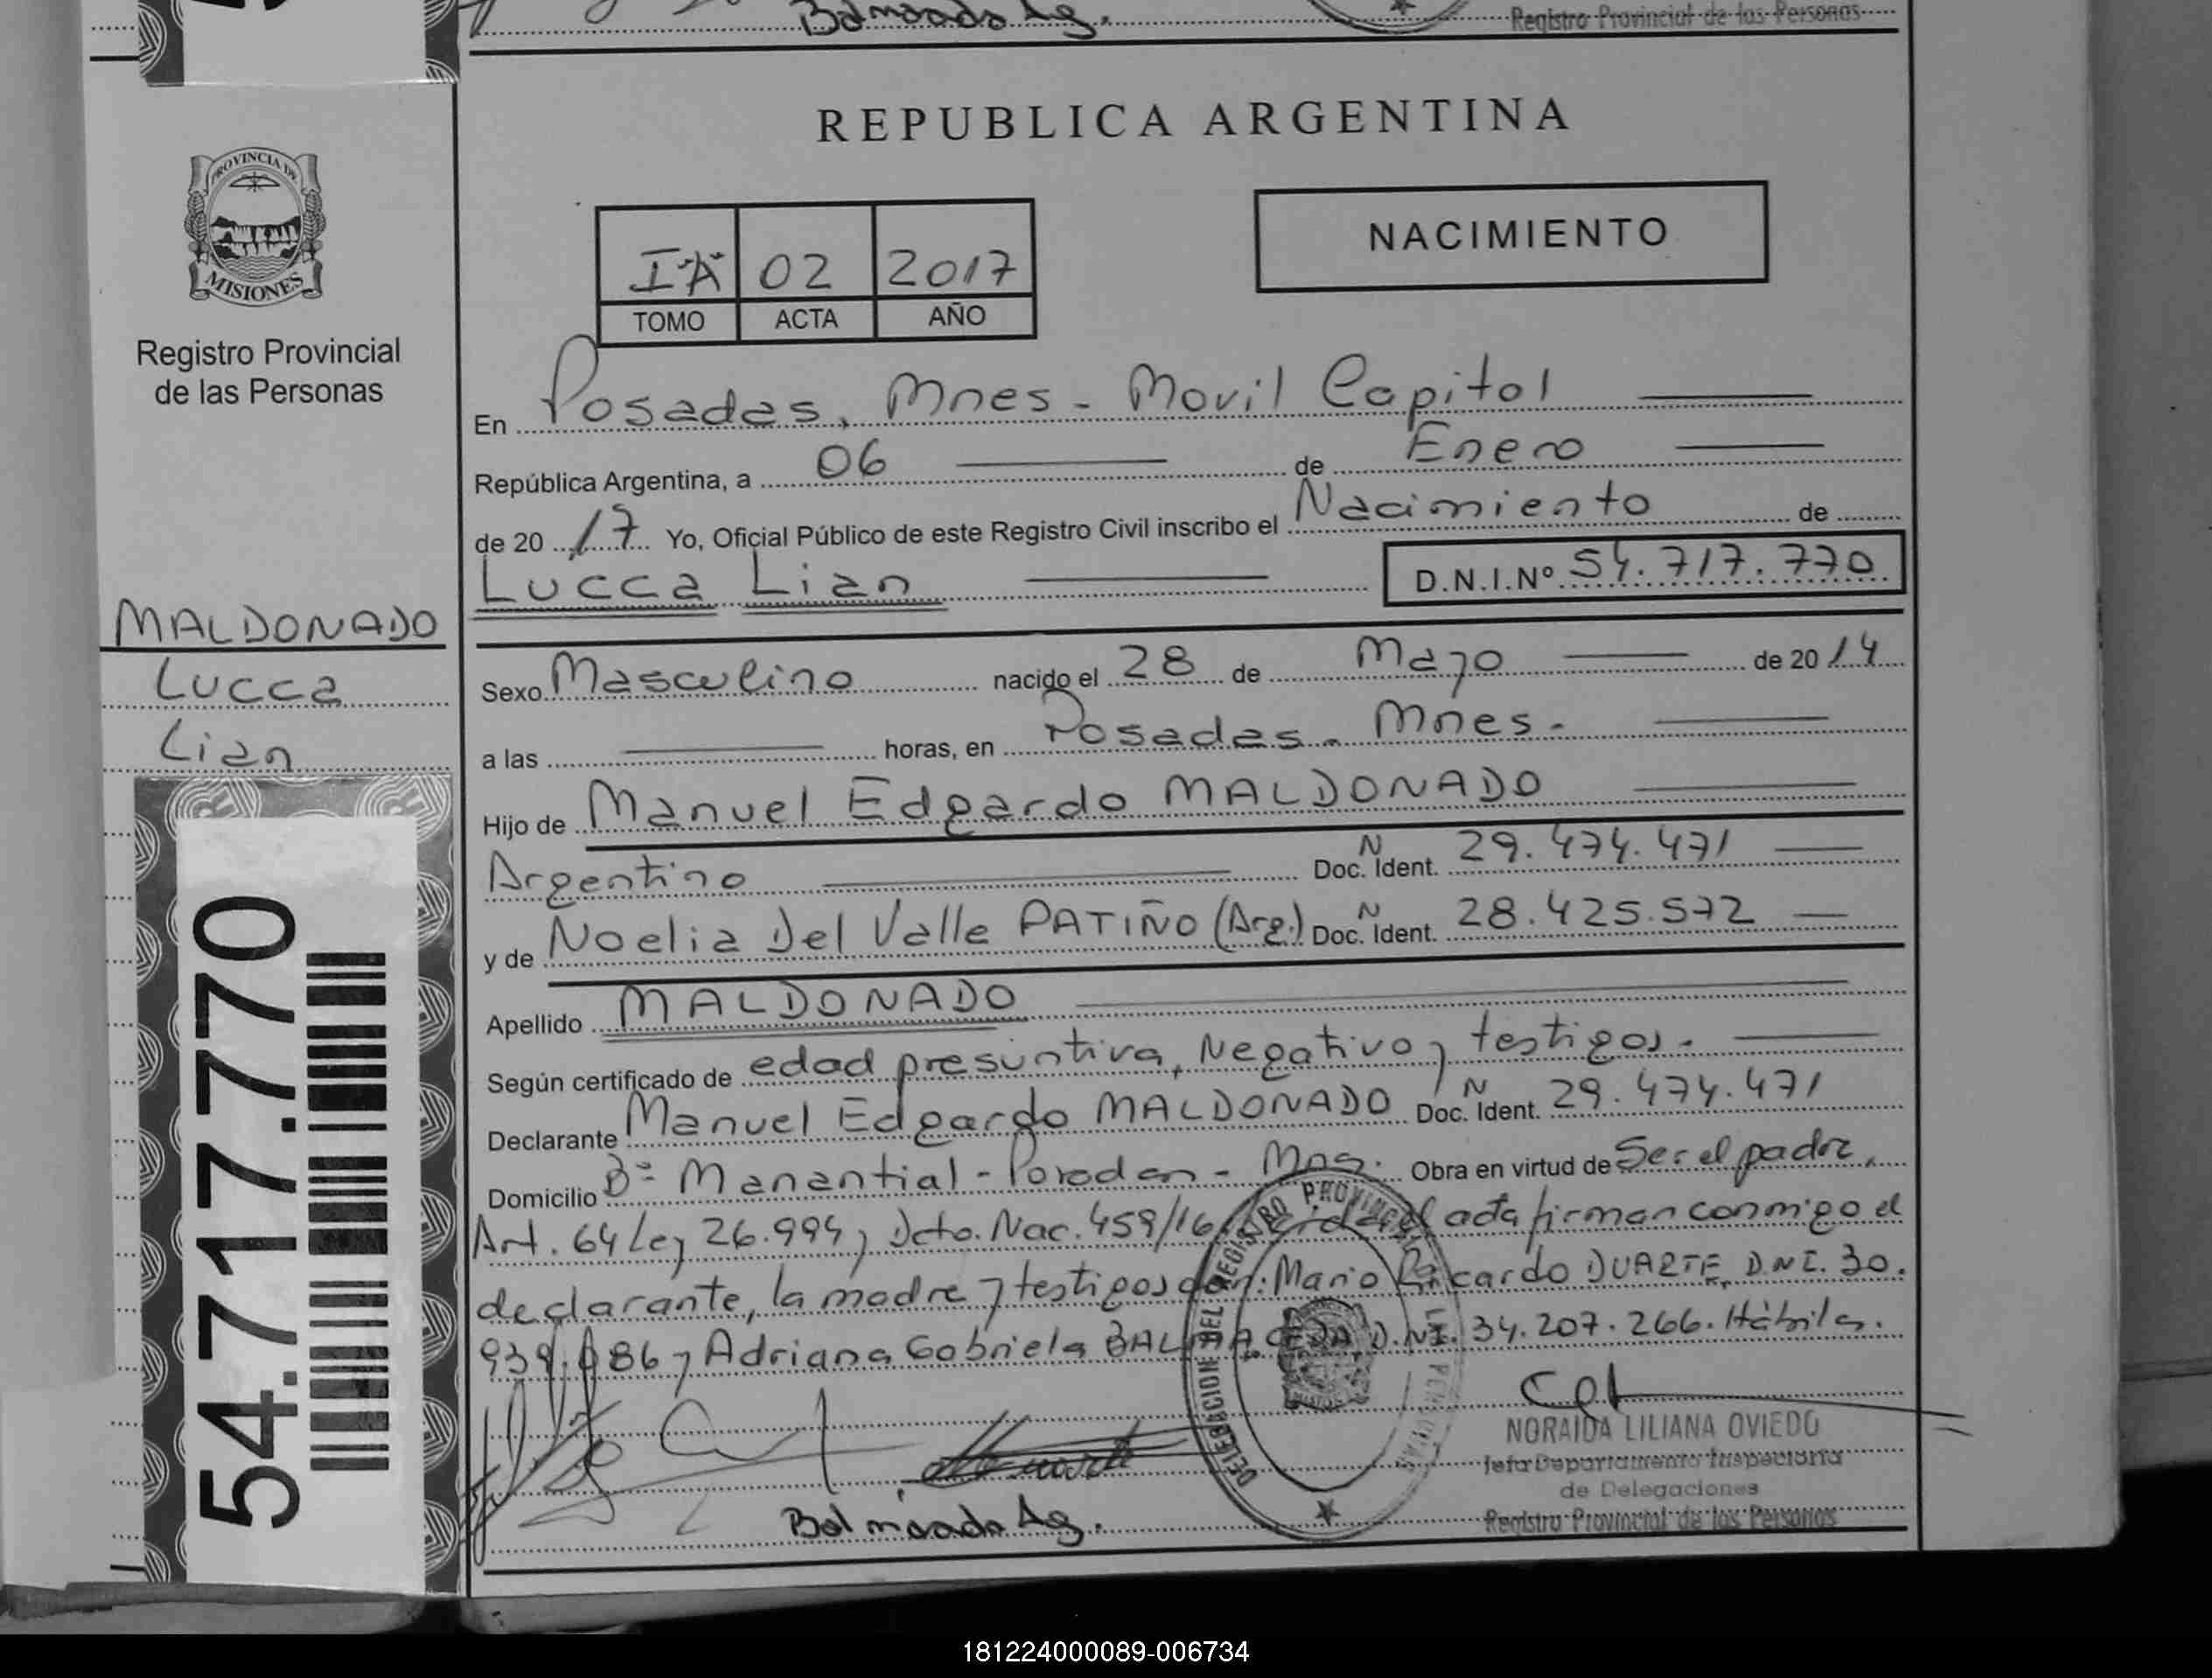 Balmaceda Ag.
Registro Provincial de las Personas
PROVINCIA DE
MISIONES
Registro Provincial
de las Personas
MALDONADO
Lucca
Lian
54.717.770
REPUBLICA ARGENTINA
I"A" 02 2017
TOMO ACTA AÑO
NACIMIENTO
En Posadas, Mnes - Movil Capital
República Argentina, a 06 de Enero
de 20 17 Yo, Oficial Público de este Registro Civil inscribo el Nacimiento de
Lucca Lian D.N.I.Nº 54.717.770
Sexo Masculino nacido el 28 de Mayo de 20 14
a las horas, en Posadas. Mnes.
Hijo de Manuel Edgardo MALDONADO
Argentino Doc. N Ident. 29.474.471
y de Noelia Del Valle PATIÑO (Arg.) Doc. N Ident. 28.425.572
Apellido MALDONADO
Según certificado de edad presuntiva, Negativo y testigos.
Declarante Manuel Edgardo MALDONADO Doc. N Ident. 29.474.471
Domicilio Bº Manantial - Posadas - Mns. Obra en virtud de Ser el padre,
Art. 64 Ley 26.994 y Dcto. Nac. 459/16 acta firman conmigo el
declarante, la madre y testigos Mario Ricardo DUARTE, D.N.I. 30.
939.086 y Adriana Gabriela BALMACEDA D.N.I. 34.207.266. Hábiles.
DELEGACION DEL REGISTRO PROVINCIAL DE LAS PERSONAS
Balmaceda Ag.
NORAIDA LILIANA OVIEDO
Jefa Departamento Inspectoria
de Delegaciones
Registro Provincial de las Personas
181224000089-006734